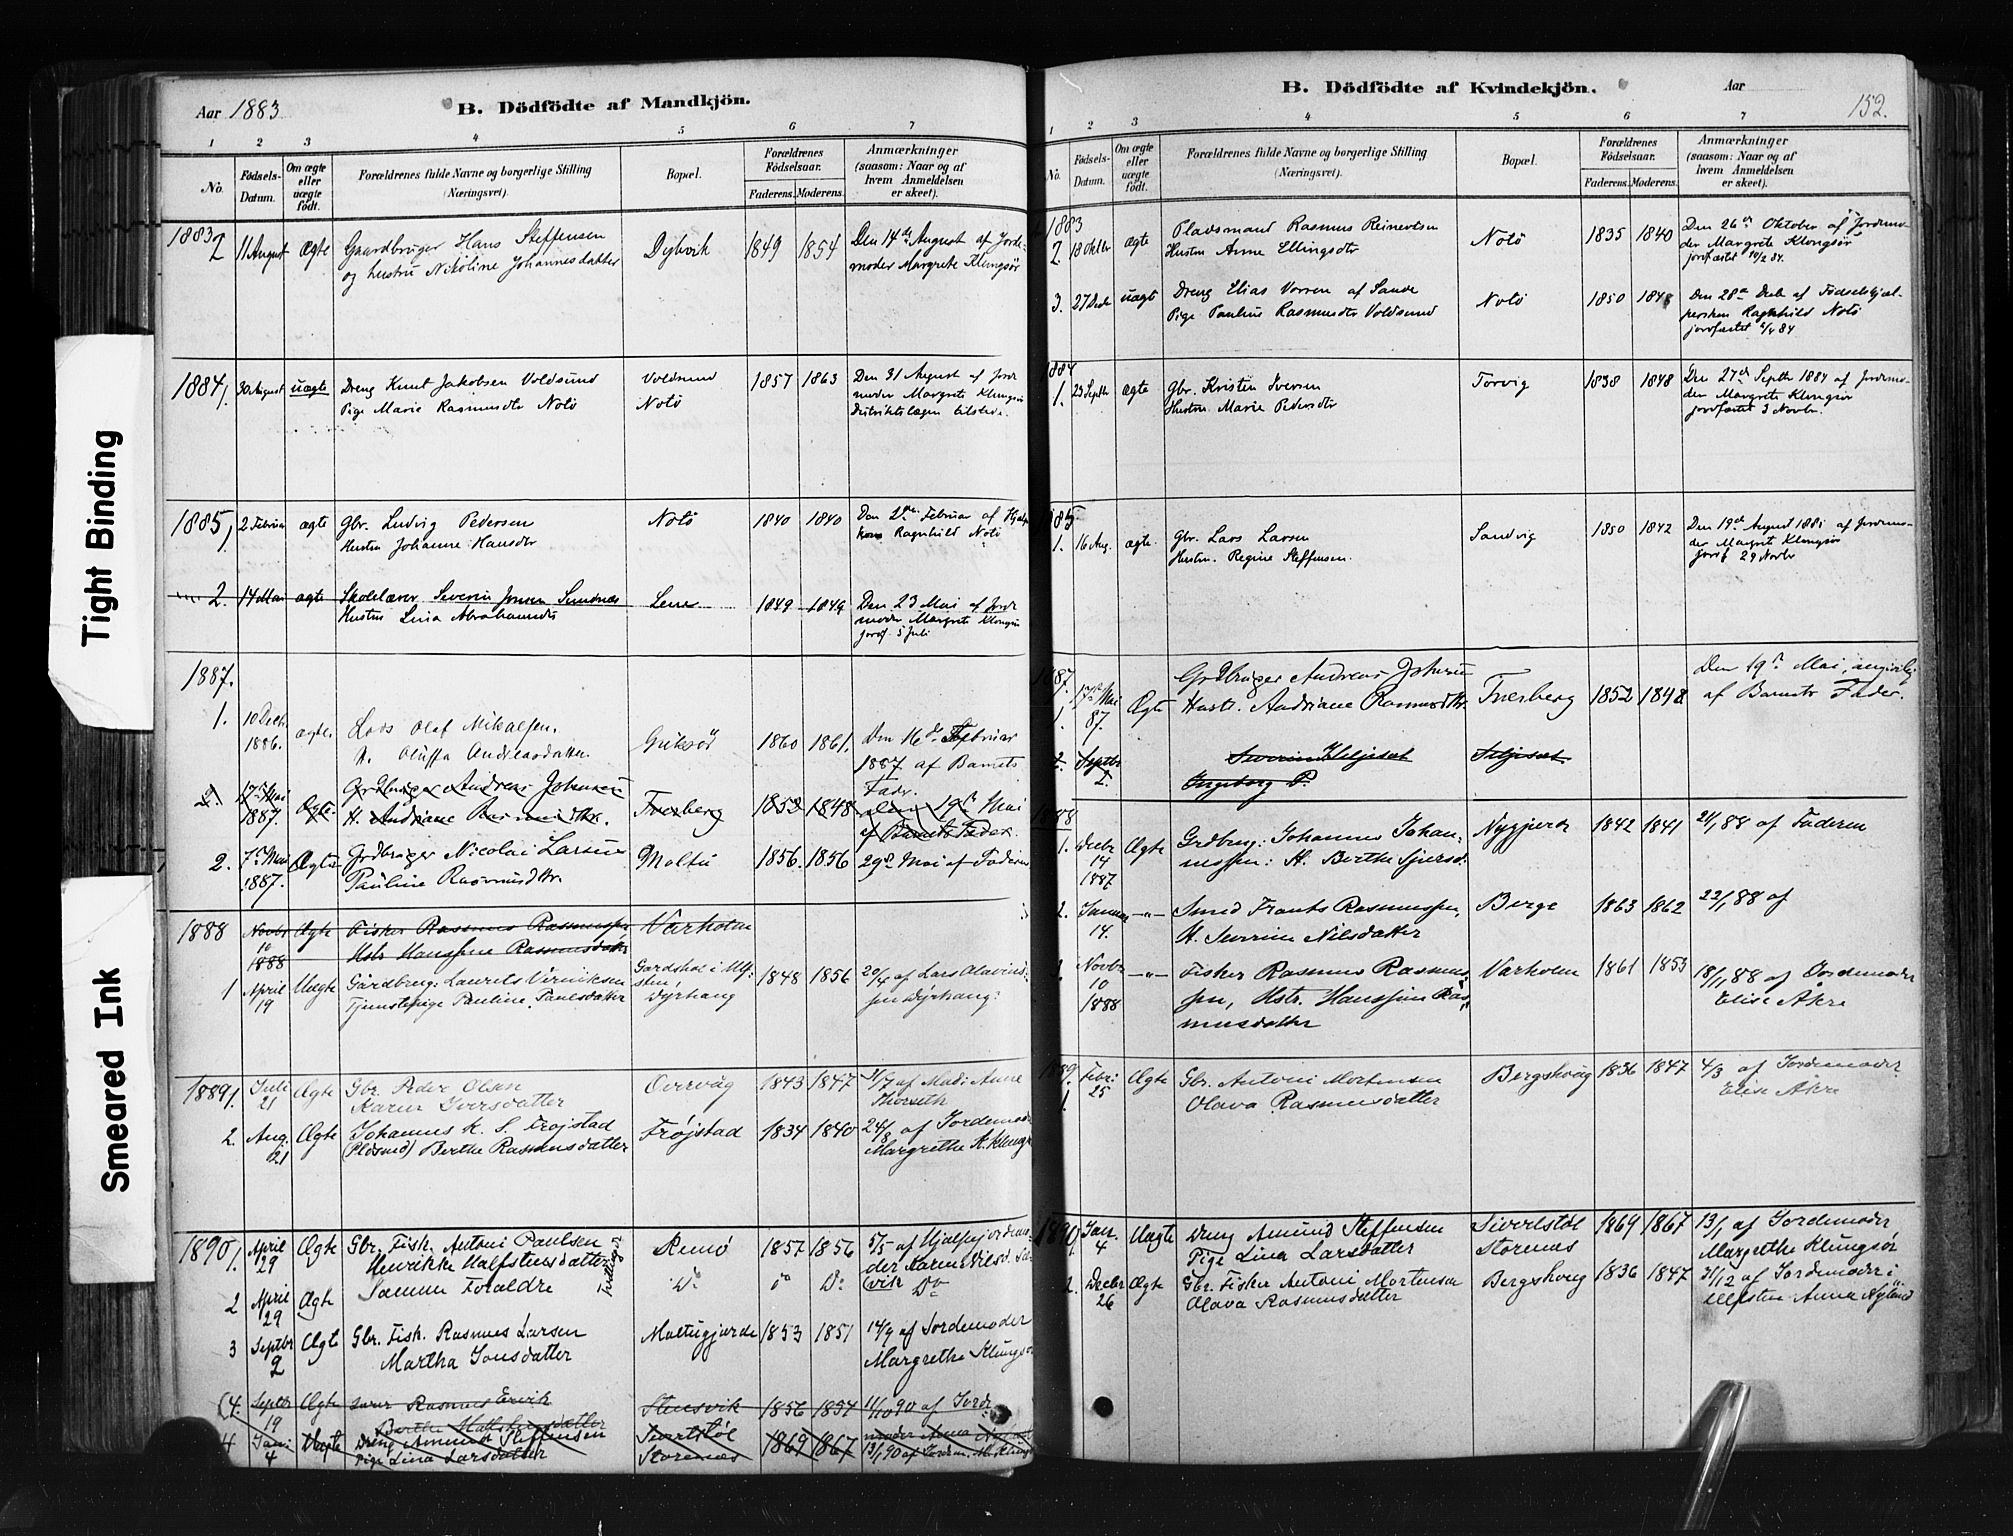 Tight Binding
Smeared Ink
Aar 1883
B. Dödfödte af Mandkjön.
1 2 3 4 5 6 7
No.
Fødsels-Datum.
Om ægte eller uægte født.
Forældrenes fulde Navne og borgerlige Stilling
(Næringsvei).
Bopæl.
Forældrenes Fødselsaar.
Faderens. Moderens.
Anmærkninger
(saasom: Naar og af
hvem Anmeldelsen
er skeet).
1883
2 11 August Ægte Gaardbruger Hans Steffensen Dybvik 1849 1854 Den 14de August af Jorde-
og hustru Nikoline Johannesdatter moder Margrete Klungsør
1884
1. 30 August uægte Dreng Knut Jakobsen Voldsund Voldsund 1857 1863 Den 31 August af Jord
Pige Marie Rasmusdtr Notö Notö moder Margrete Klongsör
Distriktslægen tilstede.
1885
1 2 Februar ægte Gbr. Ludvig Pedersen Notö 1840 1840 Den 2den Februar af Hjælpe
Hustru Johanne Hansdtr kone Ragnhild Notö
2. 14 Mai ægte Skolelærer Severin Jensen Sundnæs 1849 1849 Den 23 Mai af Jord
Hustru Lina Abrahamsdtr moder Margrete Klongsör
jordf. 5 Juli
1887.
1. 10 Decb. 1886. ægte Olaf Mikalsen. 1860 1861. Den 16de Februar
Oluffa Andreasdatter 1887 af Barnets
Fader.
2. 17de Mai 1887. Ægte. Grdbruger Andreas Johnsen Tverberg 1852 1848 den 19de Mai
H. Andriane Rasmusdtr. af Barnets Fader.
2. 7de Mai 1887. Ægte Grdbruger Nicolai Larsen Moltu 1856. 1856 29de Mai af Faderen
Pauline Rasmusdtr.
1888
Novbr 10 1888 Ægte Fisker Rasmus Rasmussen Varholm
Hstr Hanssine Rasmusdatter
1 April 19 Uægte Gårdbrug. Laurits Vermiksen 1848 1856 20/4 af Lars Olavius-
Tjenstepige Pauline Paulsdatter Dyrhaug sen Dyrhaug.
1889
1. Juli 21 Ægte Gbr Peder Olsen Overvåg 1843 1847 31/7 af Mad. Anne
Karen Iversdatter Thorseth
2. Aug. 21 Ægte Johannes K. S. Frøjstad Frøjstad 1834 1840 24/8 af Jordemoder
(Pldsmd) Berthe Rasmusdatter Margrethe K. Klungs
1890
1. April 29 Ægte Gbr. Fisk. Antoni Paulsen Remø 1857 1856 5/5 af Hjælpejordemo
Henrikke Halfstensdatter der Karen Nilsd. Sa
Tvillinger
vik
2 April 29 Ægte Samme Foraldre Do Do Do Do
3 Septbr 2 Ægte Gbr. Fisk. Rasmus Larsen Moltugjærde 1853 1851 14/9 af Jordemoder
Martha Jonsdatter Margrethe Klungsø
(4. Septbr 19 Ægte Rasmus Ervik Stensvik 1856 1857 11/10 90 af Jord
Berthe Halfstensdatter moder Anna
4 Jan: 4 Uægte Dreng Amund Steffensen Sivertstøl 1869 1867
Pige Lina Larsdatter Storenæs 13/1 90 af Jordm. M. Klungs
B. Dödfödte af Kvindekjön.
Aar
152.
1 2 3 4 5 6 7
No.
Fødsels-Datum.
Om ægte eller uægte født.
Forældrenes fulde Navne og borgerlige Stilling
(Næringsvei).
Bopæl.
Forældrenes Fødselsaar.
Faderens. Moderens.
Anmærkninger
(saasom: Naar og af
hvem Anmeldelsen
er skeet).
1883
2. 18 Oktbr ægte Pladsmand Rasmus Reinertsen Notö 1835 1840 Den 26de Oktober af Jordemo-
Hustru Anne Ellingsdtr der Margrete Klongsör
jordfæstet 10/2 84.
3. 27 Decb uægte Dreng Elias Vorren af Sande Notö 1850 1848 Den 28de Decb af Fødselshjæl-
Pige Pauline Rasmusdtr Voldsund persken Ragnhild Notö
jordfæstet 2/4 84
1884
1. 23 Septbr ægte Gbr. Kristen Iversen Torvig 1838 1848 Den 27de Septbr 1884 af Jordemo-
Hustru Marie Pedersdtr der Margrete Klongsör
jordfæstet 3 Novbr.
1885
1. 16 Aug. ægte. Gbr. Lars Larsen Sandvig 1850 1842 Den 19de August 1885 af Jordemo-
Hustru. Regine Steffensen. der Margrete Klongsör
jordf 29 Novbr
1887.
1. 17de Mai 87. Ægte Grdbruger Andreas Johnsen Tverberg 1852 1848 Den 19de Mai, angivelig
Hustr. Andriane Rasmusdtr. af Barnets Fader.
2. Septbr 2. Severin Heljeset Seljeset
Ingeborg P.
1888
1. Decbr 14 1887 Ægte Grdbrug. Johannes Johan- Nygjerde 1842 1841 24/1 88 af Faderen
nessen: H. Berthe Sjursd.
2. Januar 14. —"— Smed Frants Rasmussen, Berge 1863 1862 22/1 88 af
H. Severine Nilsdatter
Novbr 10 1888 —"— Fisker Rasmus Rasmus- Varholm 1861 1853 18/11 88 af Jordemoder
sen, Hstr. Hanssine Ras- Elise Åkre
musdatter
1889.
1. Febr: 25 Ægte Gbr. Antoni Mortensen Bergshoug 1836 1847 4/3 af Jordemoder
Olava Rasmusdatter Elise Åkre
1890
1. Jan. 4 Uægte Dreng Amund Steffensen Sivertstøl 1869 1867 13/1 af Jordemoder
Pige Lina Larsdatter Storenæs Margrethe Klungsør
2. Decbr 26 Ægte Gbr. Fisker Antoni Mortensen Bergshoug 1836 1847 31/12 af Jordemoder i
Olava Rasmusdatter Ulfsten Anna Nyland